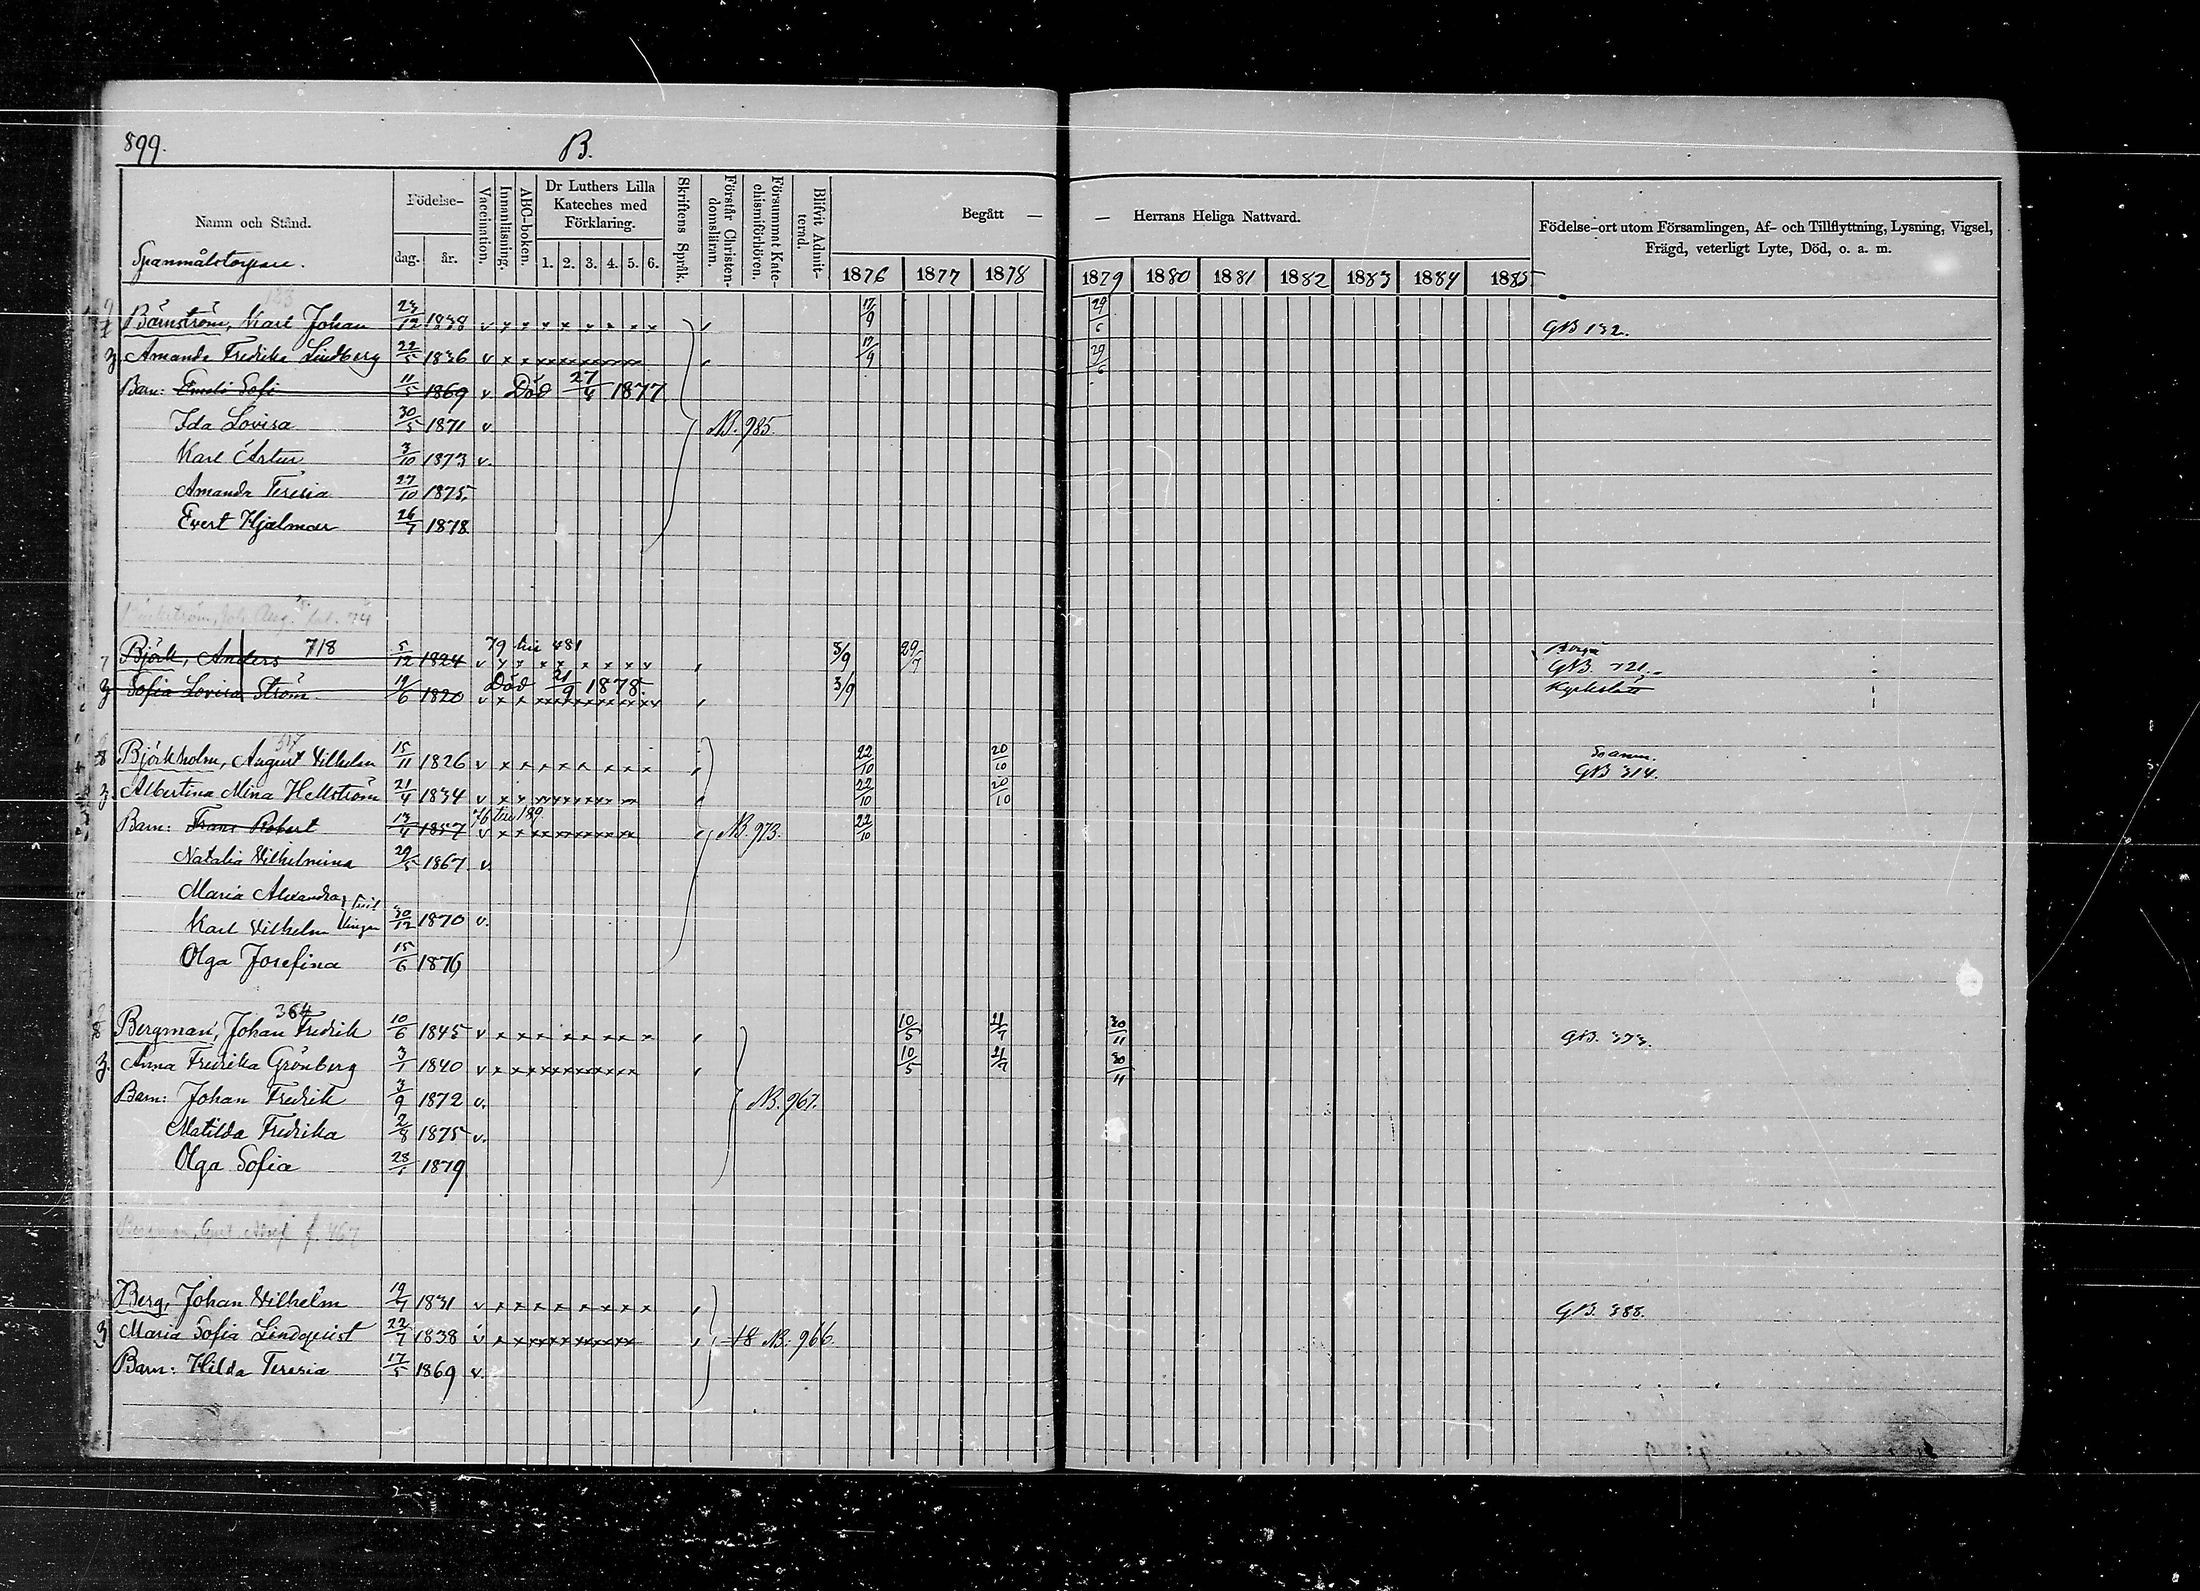 899.
B.
Namn och Stånd.
Födelse-
dag.
år.
Vaccination.
Innanläsning.
ABC-boken.
Dr Luthers Lilla
Kateches med
Förklaring.
1. 2. 3. 4. 5. 6.
Skriftens Språk.
Förstår Christen-
domsläran.
Försummat Kate-
chismiförhören.
Blifvit Admit-
terad.
Begått —
— Herrans Heliga Nattvard.
1876 1877 1878 1879 1880 1881 1882 1883 1884 1885
Födelse-ort utom Församlingen, Af- och Tillflyttning, Lysning, Vigsel,
Frägd, veterligt Lyte, Död, o. a. m.
Karl Johan 23/12 1838 v x x x x x x x x x 17/9 29/6 GB 132.
Amanda Fredrika Lindberg 22/5 1836 v 17/9 29/6
Barn: Emeli Sofi 11/5 1869 v Död 27/4 1877
Ida Lovisa 30/5 1871 v. NB. 985.
Karl Artur 3/10 1873 v.
Amanda Teresia 27/10 1875.
Evert Hjalmar 26/7 1878
Björk, Anders 718 5/12 1824 v 79 till 481 3/9 29/7 Borgå
GB. 721.
Sofia Lovisa Ström 19/6 1820 Död 21/9 1878. 3/9 Kyrkslätt
Björkholm, August Vilhelm 15/11 1826 v x x x x x x x x x 22/10 20/10
GB 314.
Albertina Mina Hellström 21/4 1834 v 22/10 20/10
Barn: Frans Robert 13/4 1857 v 76 till 189 NB. 973. 22/10
Natalia Vilhelmina 29/5 1867 v.
Maria Alexandra
Karl Vilhelm 30/12 1870 v.
Olga Josefina 15/6 1876
Bergman, Johan Fredrik 364 10/6 1845 v x x x x x x x x x 10/5 21/7 30/11 GB. 373.
Anna Fredrika Grönberg 3/1 1840 v 10/5 21/7 30/11
Barn: Johan Fredrik 3/9 1872 v. NB. 967.
Matilda Fredrika 2/8 1875 v.
Olga Sofia 28/1 1879
Berg, Johan Vilhelm 19/7 1831 v x x x x x x x x x GB. 388.
Maria Sofia Lindqvist 22/7 1838 v NB. 966.
Barn: Hilda Teresia 17/5 1869 v.